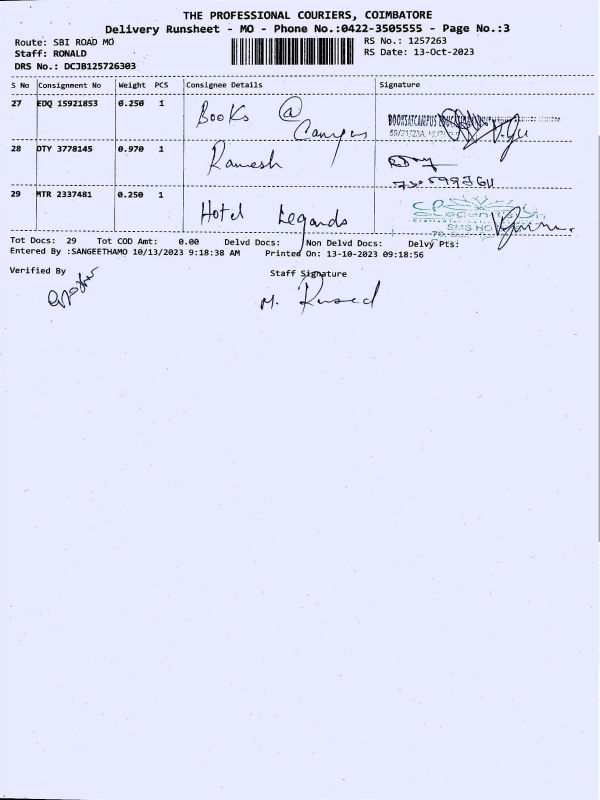 THE PROFESSIONAL COURIERS, COIMBATORE
Delivery Runsheet - MO - Phone No.:0422-3505555 - Page No.:3
Route: SBI ROAD MO
RS No.: 1257263
Staff: RONALD
RS Date: 13-Oct-2023
DRS No.: DCJB125726303
S No Consignment No Weight PCS Consignee Details Signature
27 EDQ 15921853 0.250 1 Books @ Campus
28 OTY 3778145 0.970 1 Ramesh
29 MTR 2337481 0.250 1 Hotel Legands
Tot Docs: 29 Tot COD Amt: 0.00 Delvd Docs: Non Delvd Docs: Delvy Pts:
Entered By :SANGEETHAMO 10/13/2023 9:18:38 AM Printed On: 13-10-2023 09:18:56
Verified By Staff Signature
M.